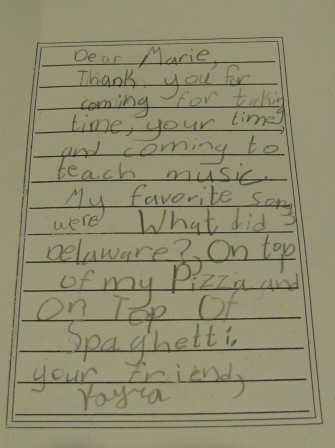 Dear Marie,
Thank you for
coming for taking
time, your time,
and coming to
teach music.
My favorite songs
were What did
Delaware?, On top
of my Pizza and
On Top Of
Spaghetti.
your friend,